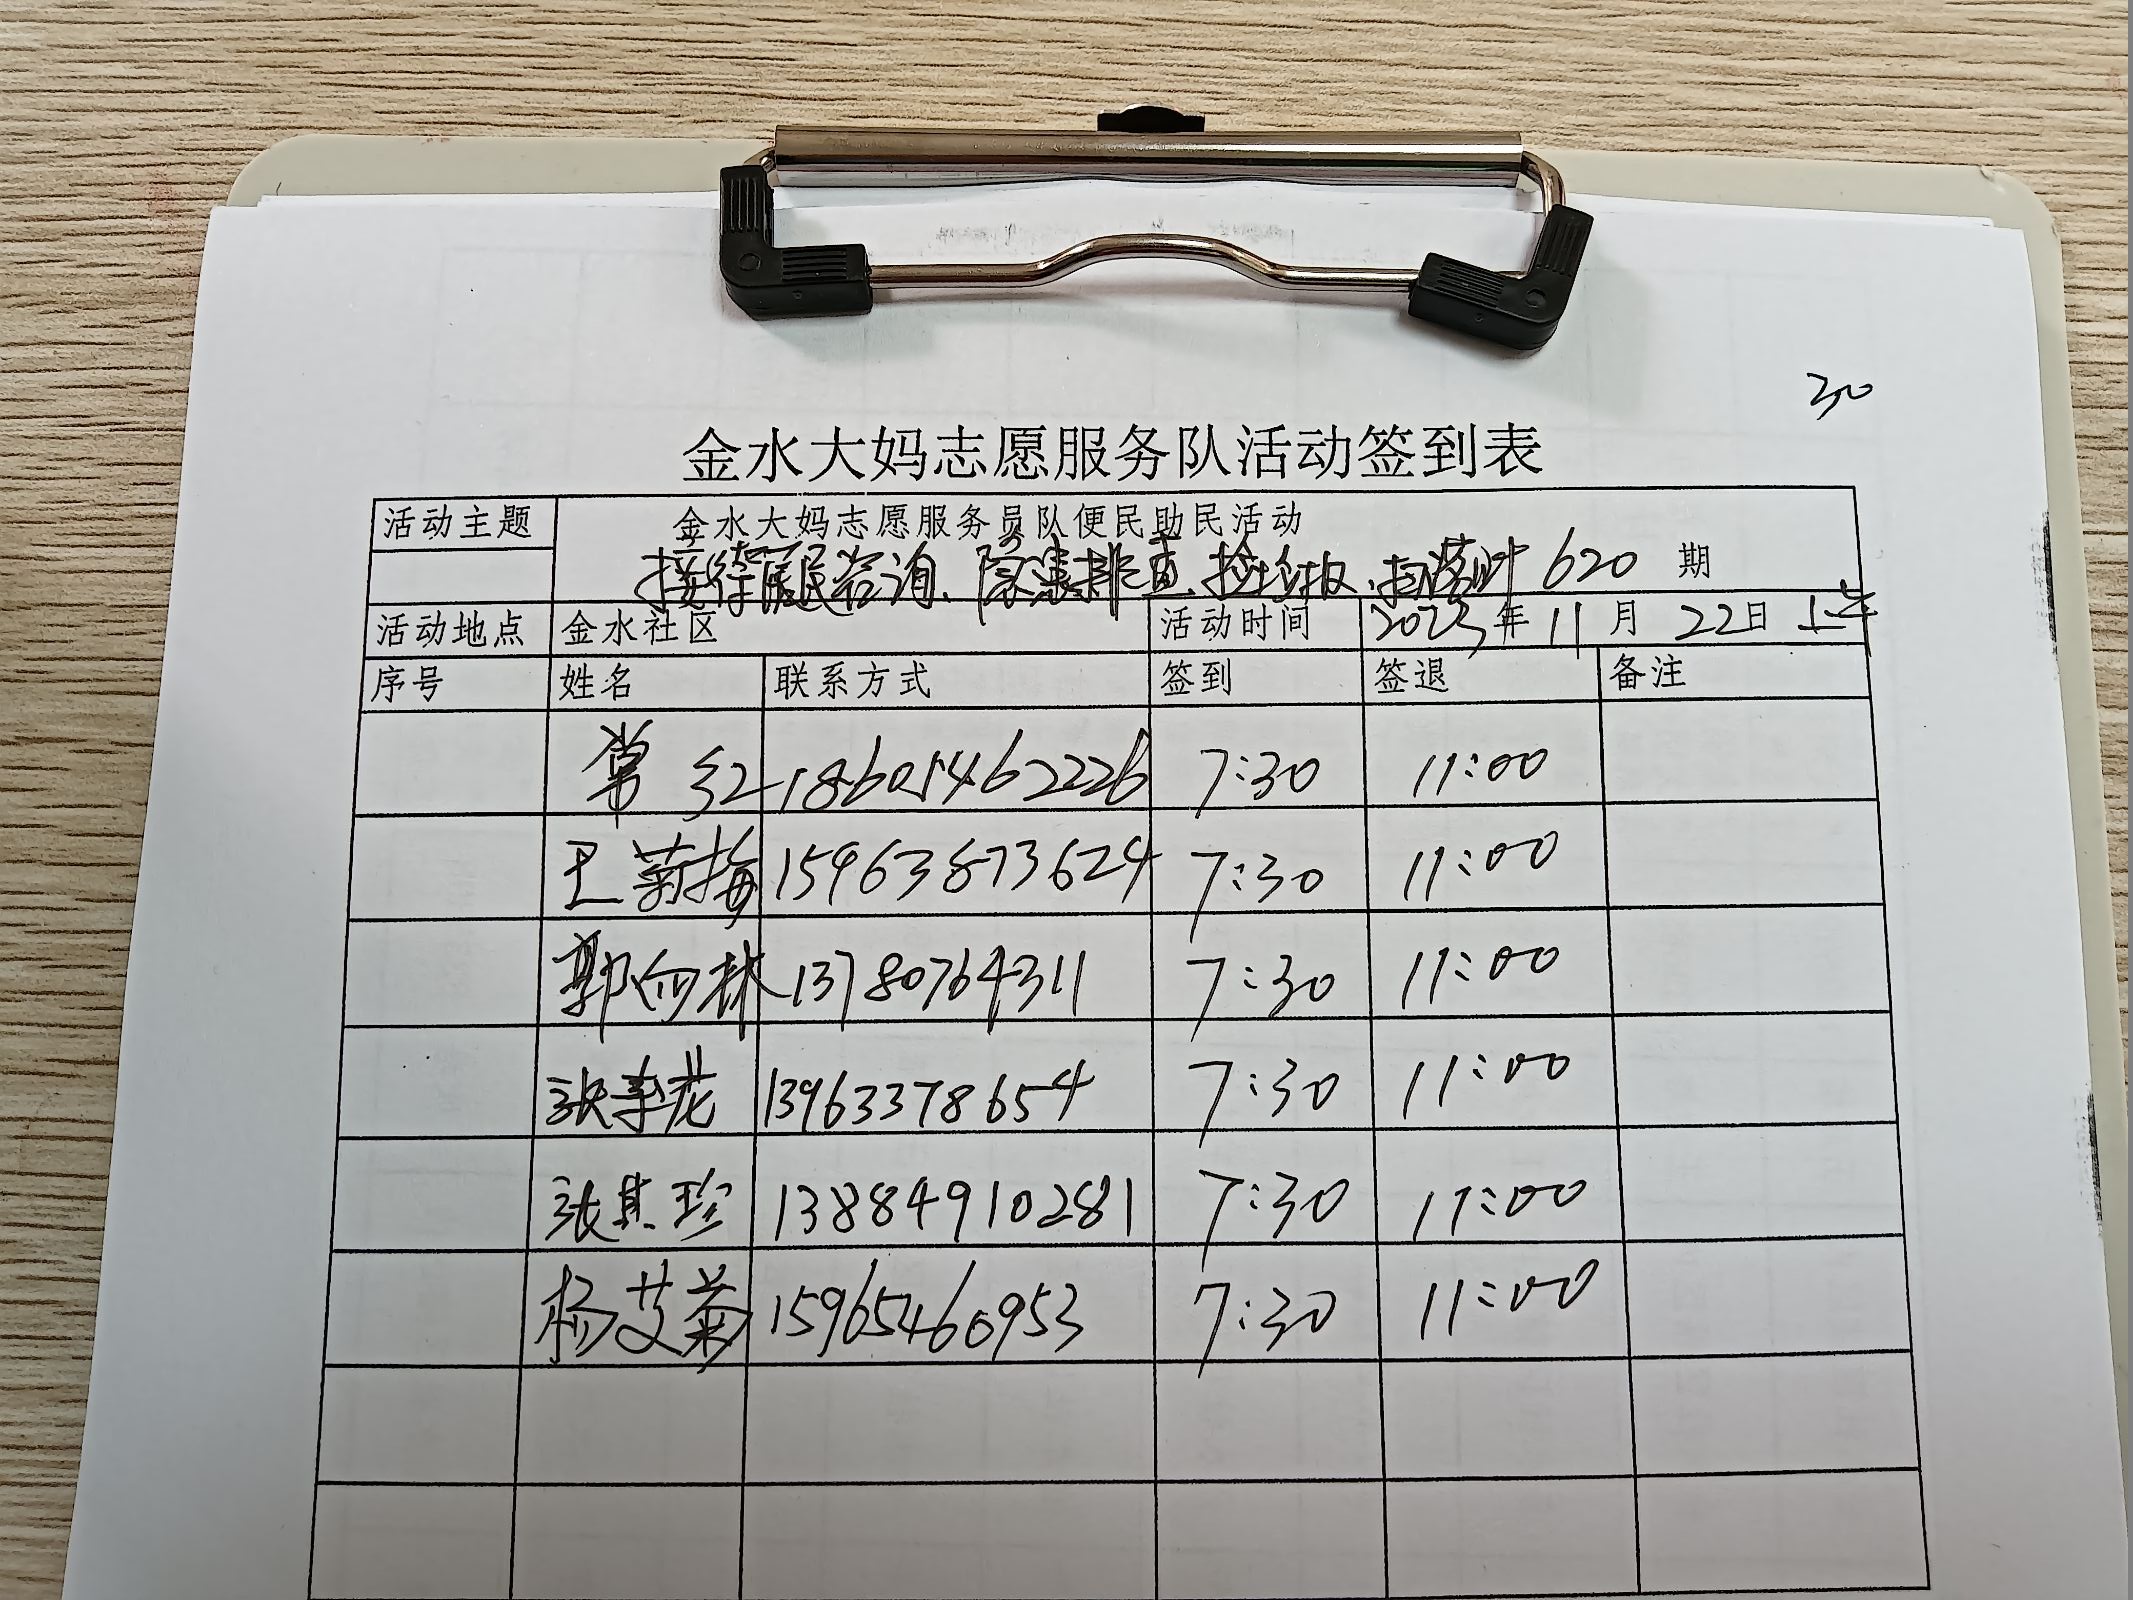 30
金水大妈志愿服务队活动签到表
活动主题 金水大妈志愿服务员队便民助民活动
接待居民咨询、隐患排查、捡垃圾、扫落叶 620 期
活动地点 金水社区 活动时间 2023年 11 月 22日 上午
序号 姓名 联系方式 签到 签退 备注
常红 18601462226 7:30 11:00
王菊梅 15963873624 7:30 11:00
郭向林 13780764311 7:30 11:00
张季花 13963378654 7:30 11:00
张其珍 13884910281 7:30 11:00
杨艾菊 15965460953 7:30 11:00